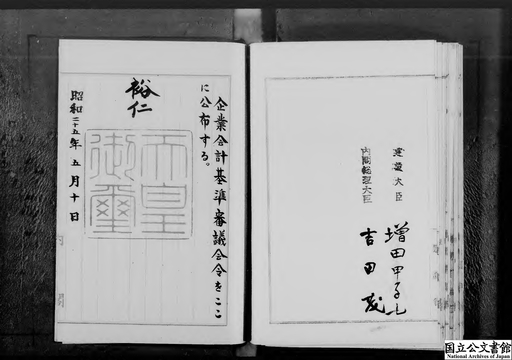 企業会計基準審議会令をここ
に公布する。
裕仁
天皇
御璽
昭和二十五年五月十日
建設大臣
増田甲子七
内閣総理大臣
吉田茂
国立公文書館
National Archives of Japan